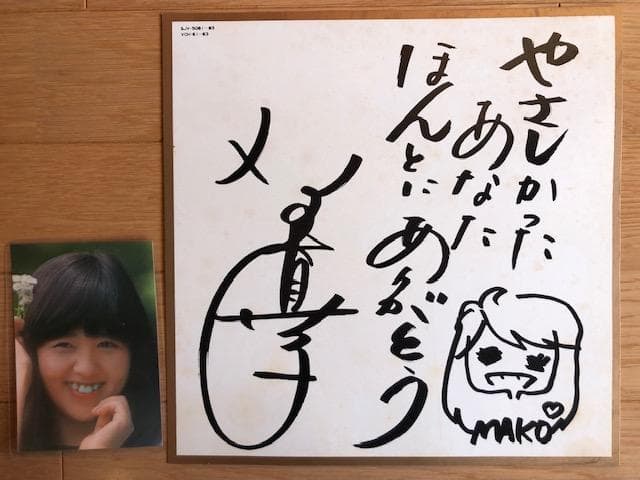 やさしかった
あなた
ほんとに ありがとう
MAKO